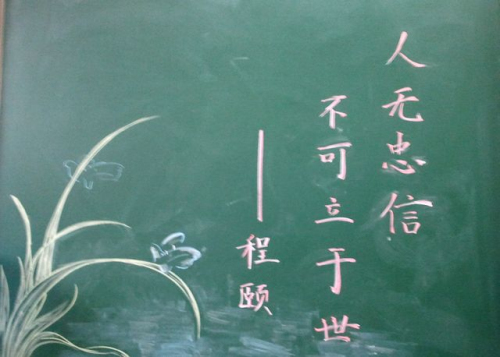 人无忠信
不可立于世
——程颐